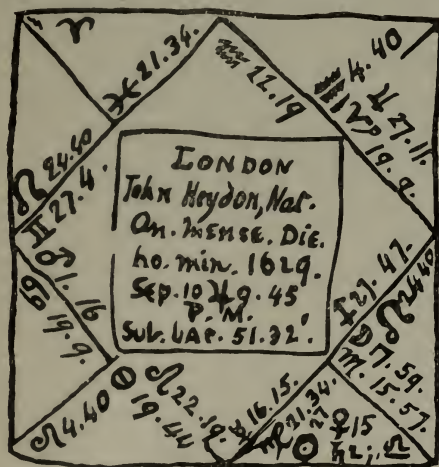 ♈
♓ 21.34.
♒ 22.19
♒ 4.40
♃ 27.11.
♑ 19.9.
24.40
♊ 27.4.
♂ 1.16
♋ 19.9.
LONDON
John Heydon, Nat.
An. Mense. Die.
ho. min. 1629.
Sep. 10 ♃ 9.45
P.M.
Sub. Lat. 51.32'.
♐ 27.47.
24.40
☽ 7.59.
♏ 15.57.
♌ 4.40
♌ 22.19.
19.44
16.15.
♍ 21.34.
☉ 27
♀ 15
♄ 2; ♎